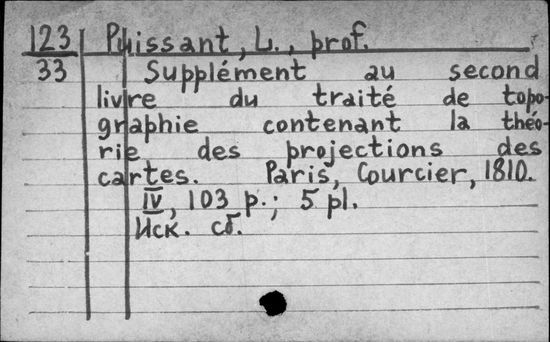 123 Puissant, L., prof.
33 Supplément au second
livre du traité de topo-
graphie contenant la théo-
rie des projections des
cartes. Paris, Courcier, 1810.
IV, 103 p.; 5 pl.
Иск. сб.